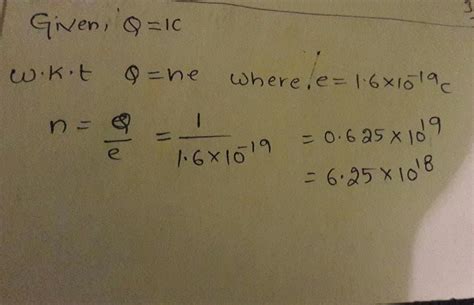 Given, Q=1C
w.k.t Q=ne where, e=1.6×10⁻¹⁹c
n = Q/e = 1/1.6×10⁻¹⁹ = 0.625×10¹⁹
= 6.25×10¹⁸